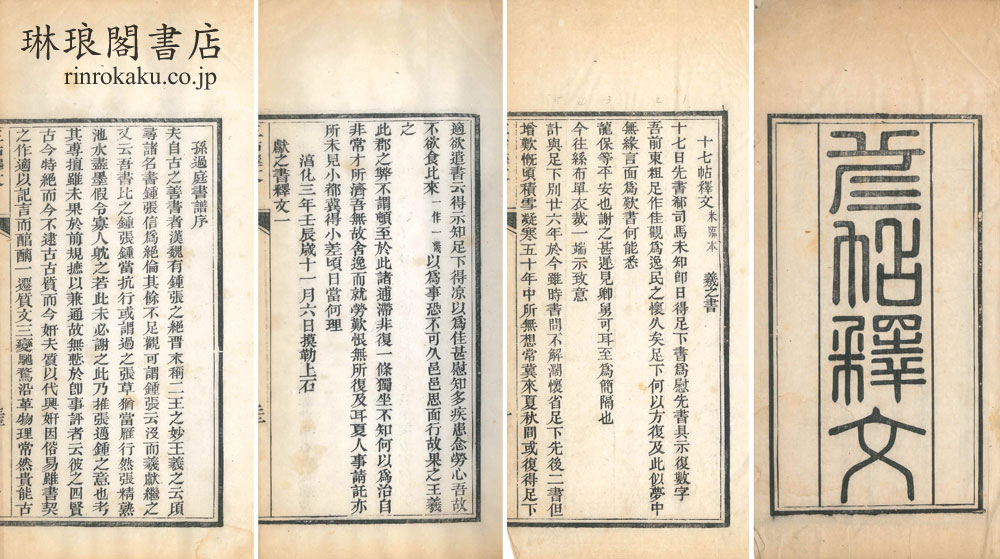 琳琅閣書店
rinrokaku.co.jp
帖釋文
十七帖釋文 米臨本 羲之書
十七日先書郗司馬未知即日得足下書爲慰先書具示復數字
吾前東粗足作佳觀爲逸民之懷久矣足下何以方復及此似夢中
無緣言面爲歎書何能悉
龍保等平安也謝之甚遲見卿舅可耳至爲簡隔也
今往絲布單衣裁一端示致意
計與足下別廿六年於今雖時書問不解濶懷省足下先後二書但
增歎慨頃積雪凝寒五十年中所無想常冀來夏秋間或復得足下
適欲遣書云得示知足下得凉以爲佳甚慰知多疾患念勞心吾故
不欲食比來一作一以爲事恐不可久邑邑思面行故果之王羲
之
此郡之弊不謂頓至於此諸逋滯非復一條獨坐不知何以爲治自
非常才所濟吾無故舍逸而就勞歎悵無所復及耳夏人事請託亦
所未見小都冀得小差頃日當何理
淳化三年壬辰歲十一月六日摸勒上石
獻之書釋文一
孫過庭書譜序
夫自古之善書者漢魏有鍾張之絕晉末稱二王之妙王羲之云頃
尋諸名書鍾張信爲絕倫其餘不足觀可謂鍾張云沒而羲獻繼之
又云吾書比之鍾張鍾當抗行或謂過之張草猶當雁行然張精熟
池水盡墨假令寡人耽之若此未必謝之此乃推張邁鍾之意也考
其專擅雖未果於前規摭以兼通故無慙於即事評者云彼之四賢
古今特絕而今不逮古古質而今妍夫質以代興妍因俗易雖書契
之作適以記言而醇醨一遷質文三變馳騖沿革物理常然貴能古